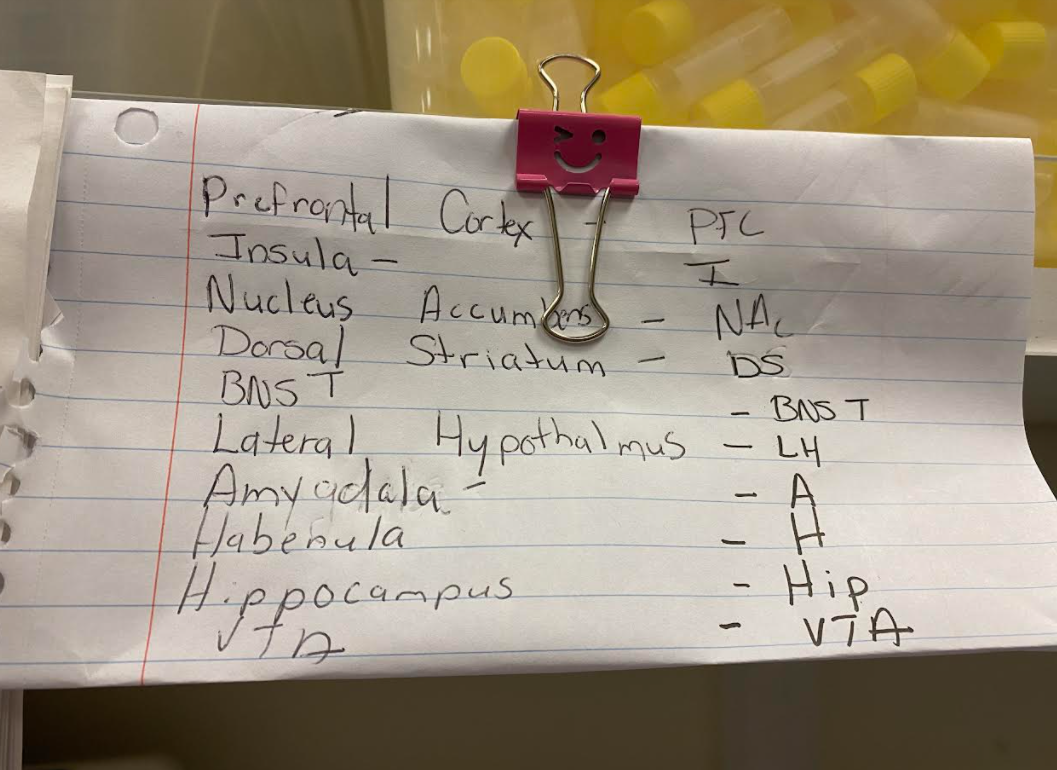 Prefrontal Cortex - PFC
Insula - I
Nucleus Accumbens - NAc
Dorsal Striatum - DS
BNST - BNST
Lateral Hypothalmus - LH
Amygdala - - A
Habenula - H
Hippocampus - Hip
VTA - VTA